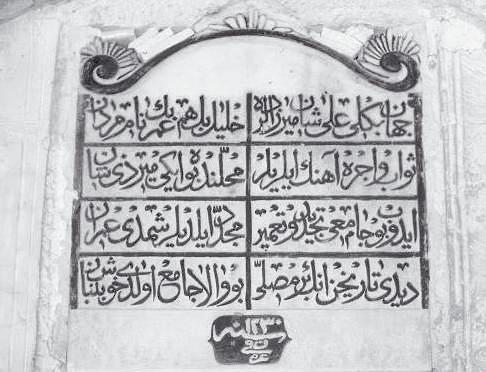 جهان بكلی علی شان میرزاده لر خلیل بك هم عمر بك نام مردان
ثواب و اجره آهنك ایلدیلر محلنده بو ایكی میر ذی شان
ایدوب بو جامعی تجدید و تعمیر مجددا ایلدیلر شمدی عمران
دیدی تاریخن انك بر مصلی بو والا جامع اولدی خوب
سنه ١٢٣٠